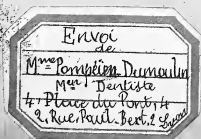 Envoi
de
Mme Pompéïen Dumoulin
Men Dentiste
4, Place du Pont, 4
2, Rue, Paul-Bert, 2 Lyon